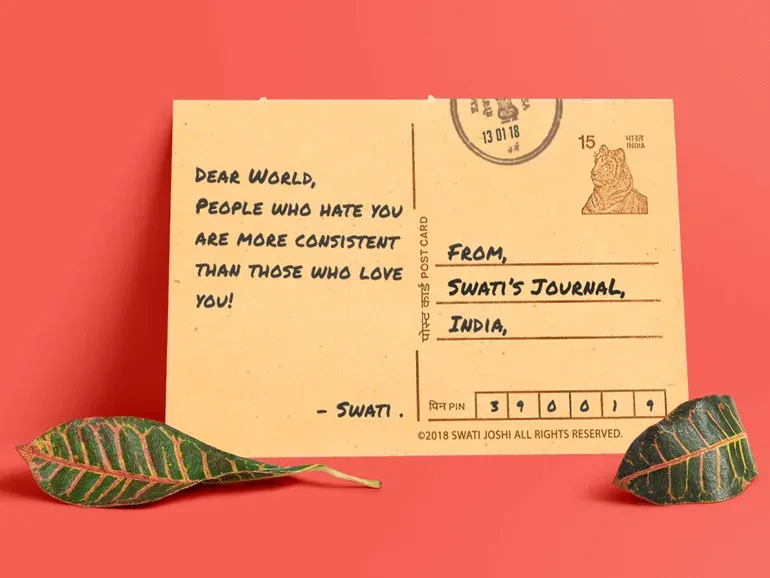 DEAR WORLD,
PEOPLE WHO HATE YOU
ARE MORE CONSISTENT
THAN THOSE WHO LOVE
YOU!
- SWATI .
पोस्ट कार्ड POST CARD
13 01 18
15 भारत
INDIA
FROM,
SWATI'S JOURNAL,
INDIA,
पिन PIN 390019
©2018 SWATI JOSHI ALL RIGHTS RESERVED.